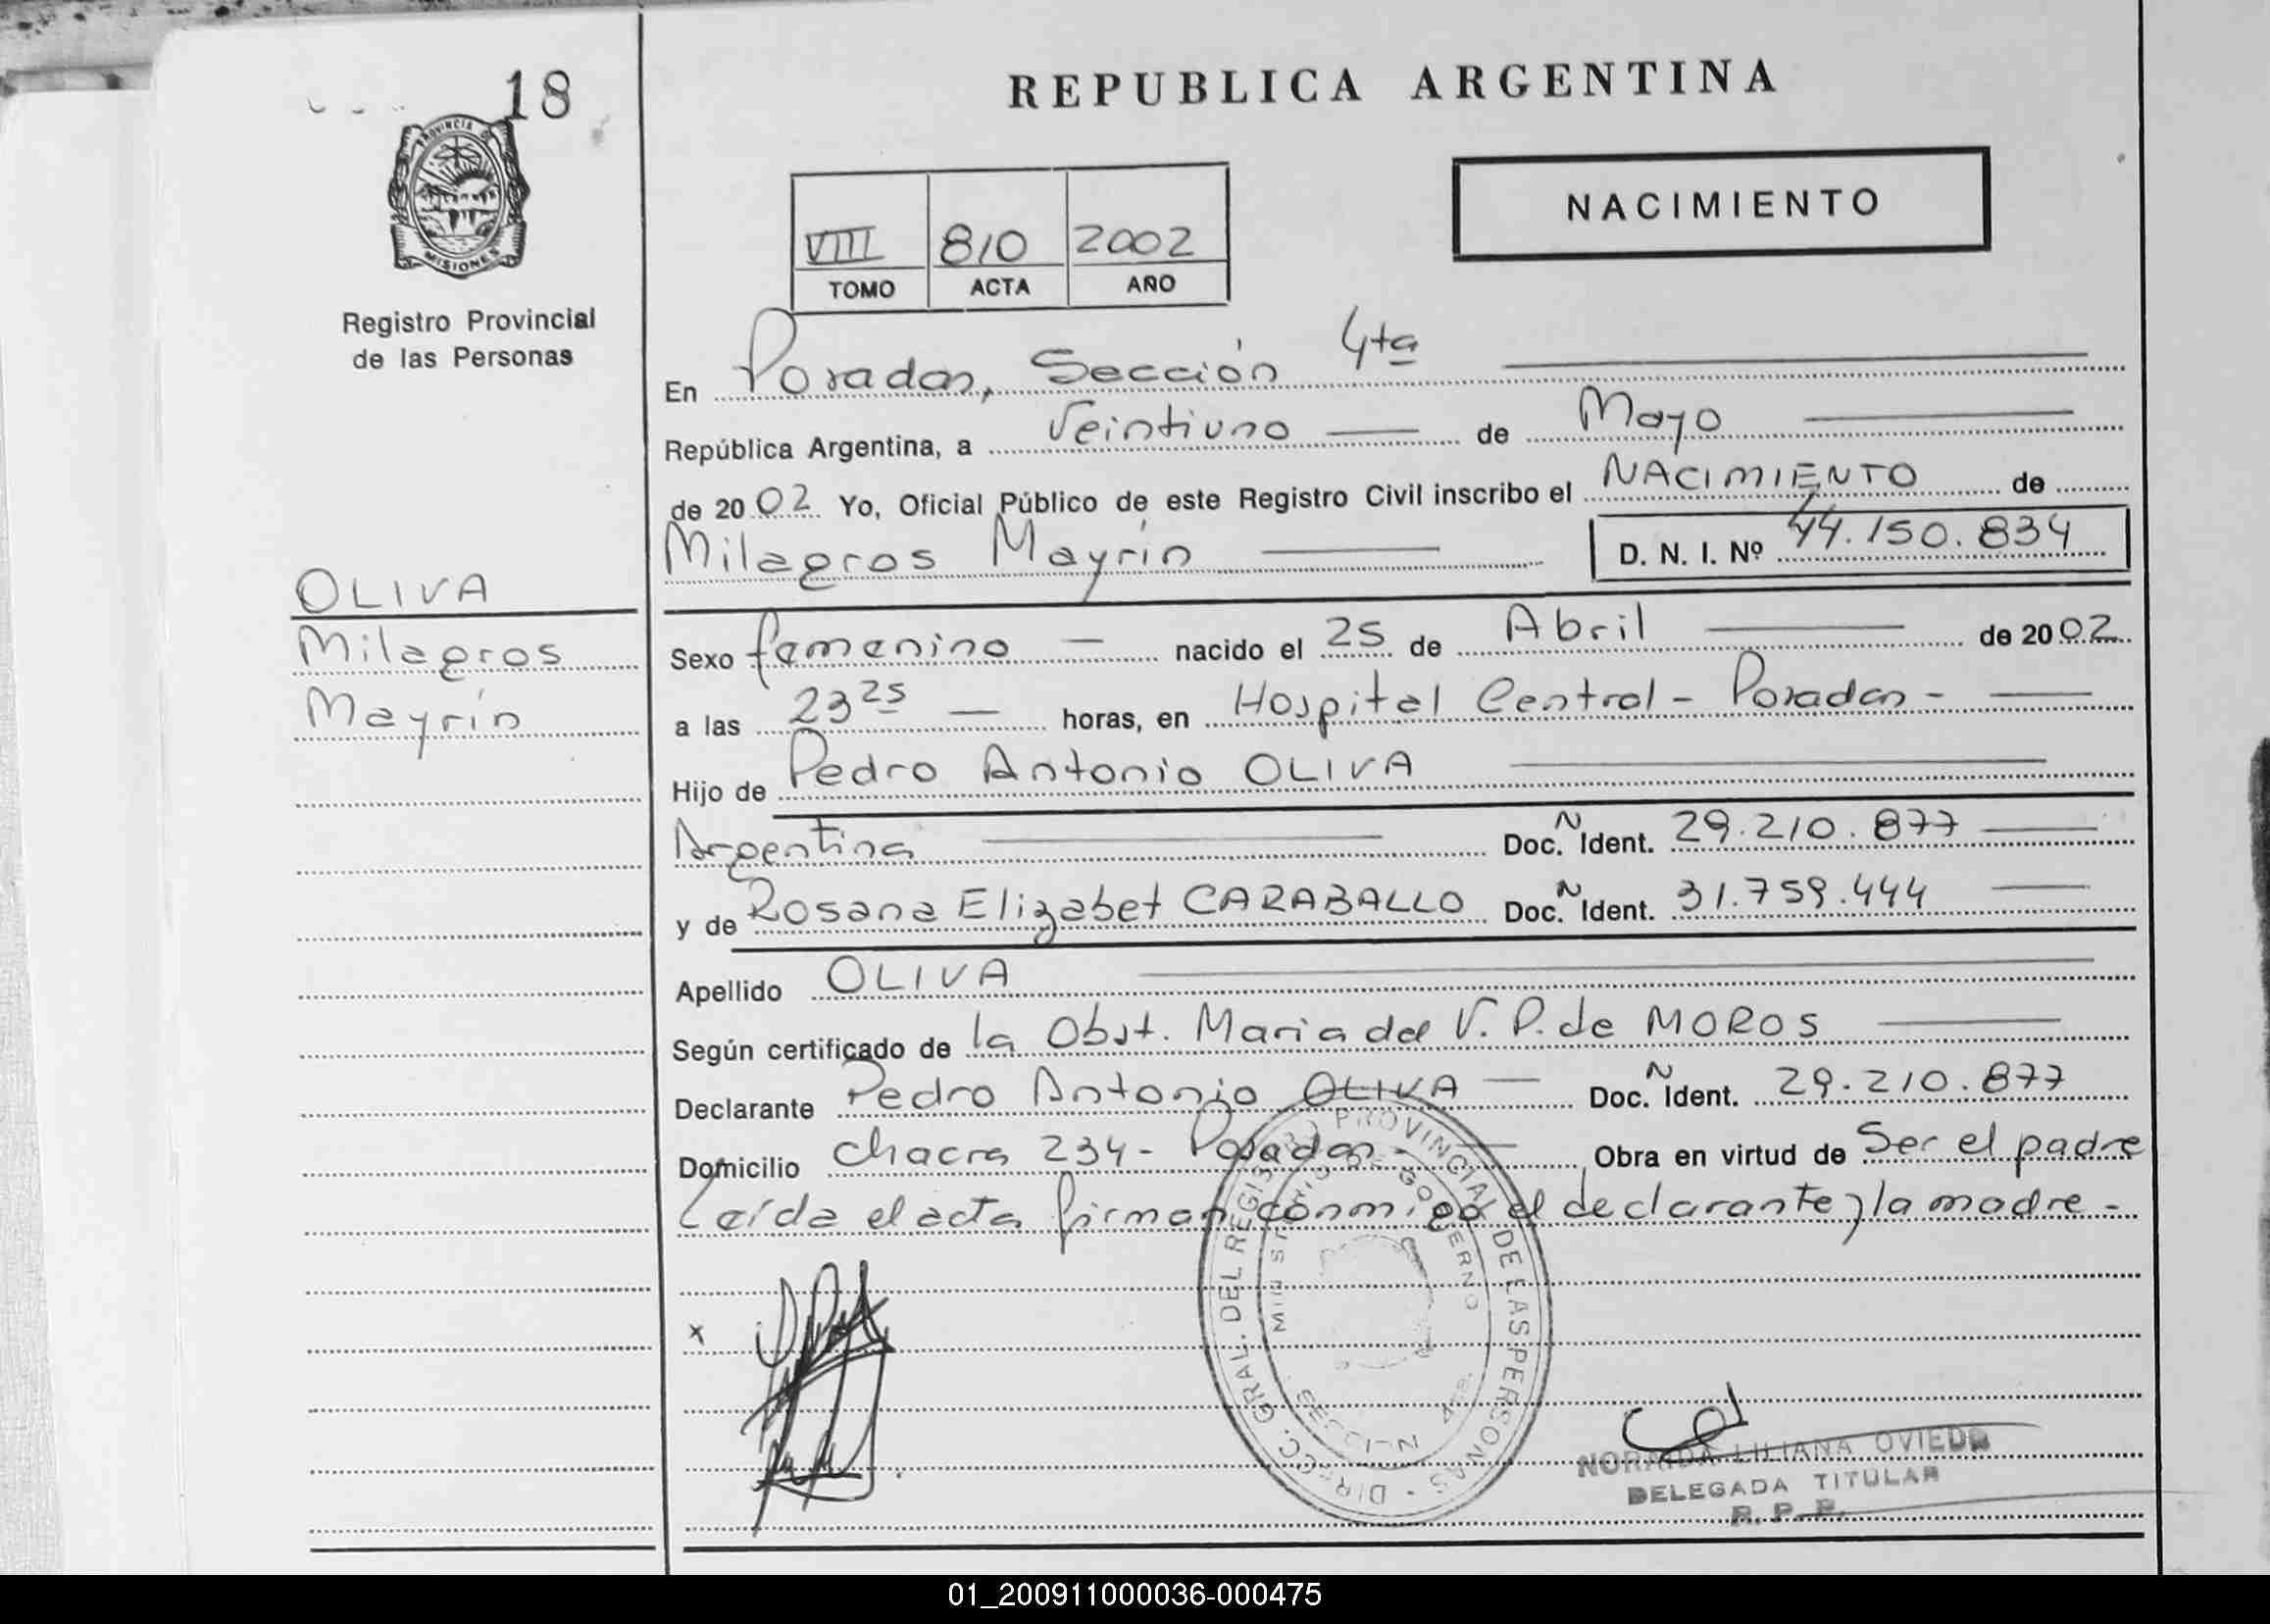 18
PROVINCIA DE
MISIONES
Registro Provincial
de las Personas
OLIVA
Milagros
Mayrín
REPUBLICA ARGENTINA
NACIMIENTO
VIII 810 2002
TOMO ACTA AÑO
En Posadas, Sección 4ta
República Argentina, a Veintiuno de Mayo
de 2002 Yo, Oficial Público de este Registro Civil inscribo el NACIMIENTO de
Milagros Mayrín D. N. I. Nº 44.150.834
Sexo femenino nacido el 25 de Abril de 2002
a las 23 25 horas, en Hospital Central - Posadas -
Hijo de Pedro Antonio OLIVA
Argentina Doc. N Ident. 29.210.877
y de Rosana Elizabet CARABALLO Doc. N Ident. 31.759.444
Apellido OLIVA
Según certificado de la Obst. Maria del V. P. de MOROS
Declarante Pedro Antonio OLIVA Doc. N Ident. 29.210.877
Domicilio Chacra 234 - Posadas - Obra en virtud de Ser el padre
Leída el acta firman conmigo el declarante y la madre -
x
DIRECC. GRAL. DEL REGISTRO PROVINCIAL DE LAS PERSONAS
MINISTERIO DE GOBIERNO
MISIONES
NORAIDA LILIANA OVIEDO
DELEGADA TITULAR
R. P. P.
01_200911000036-000475